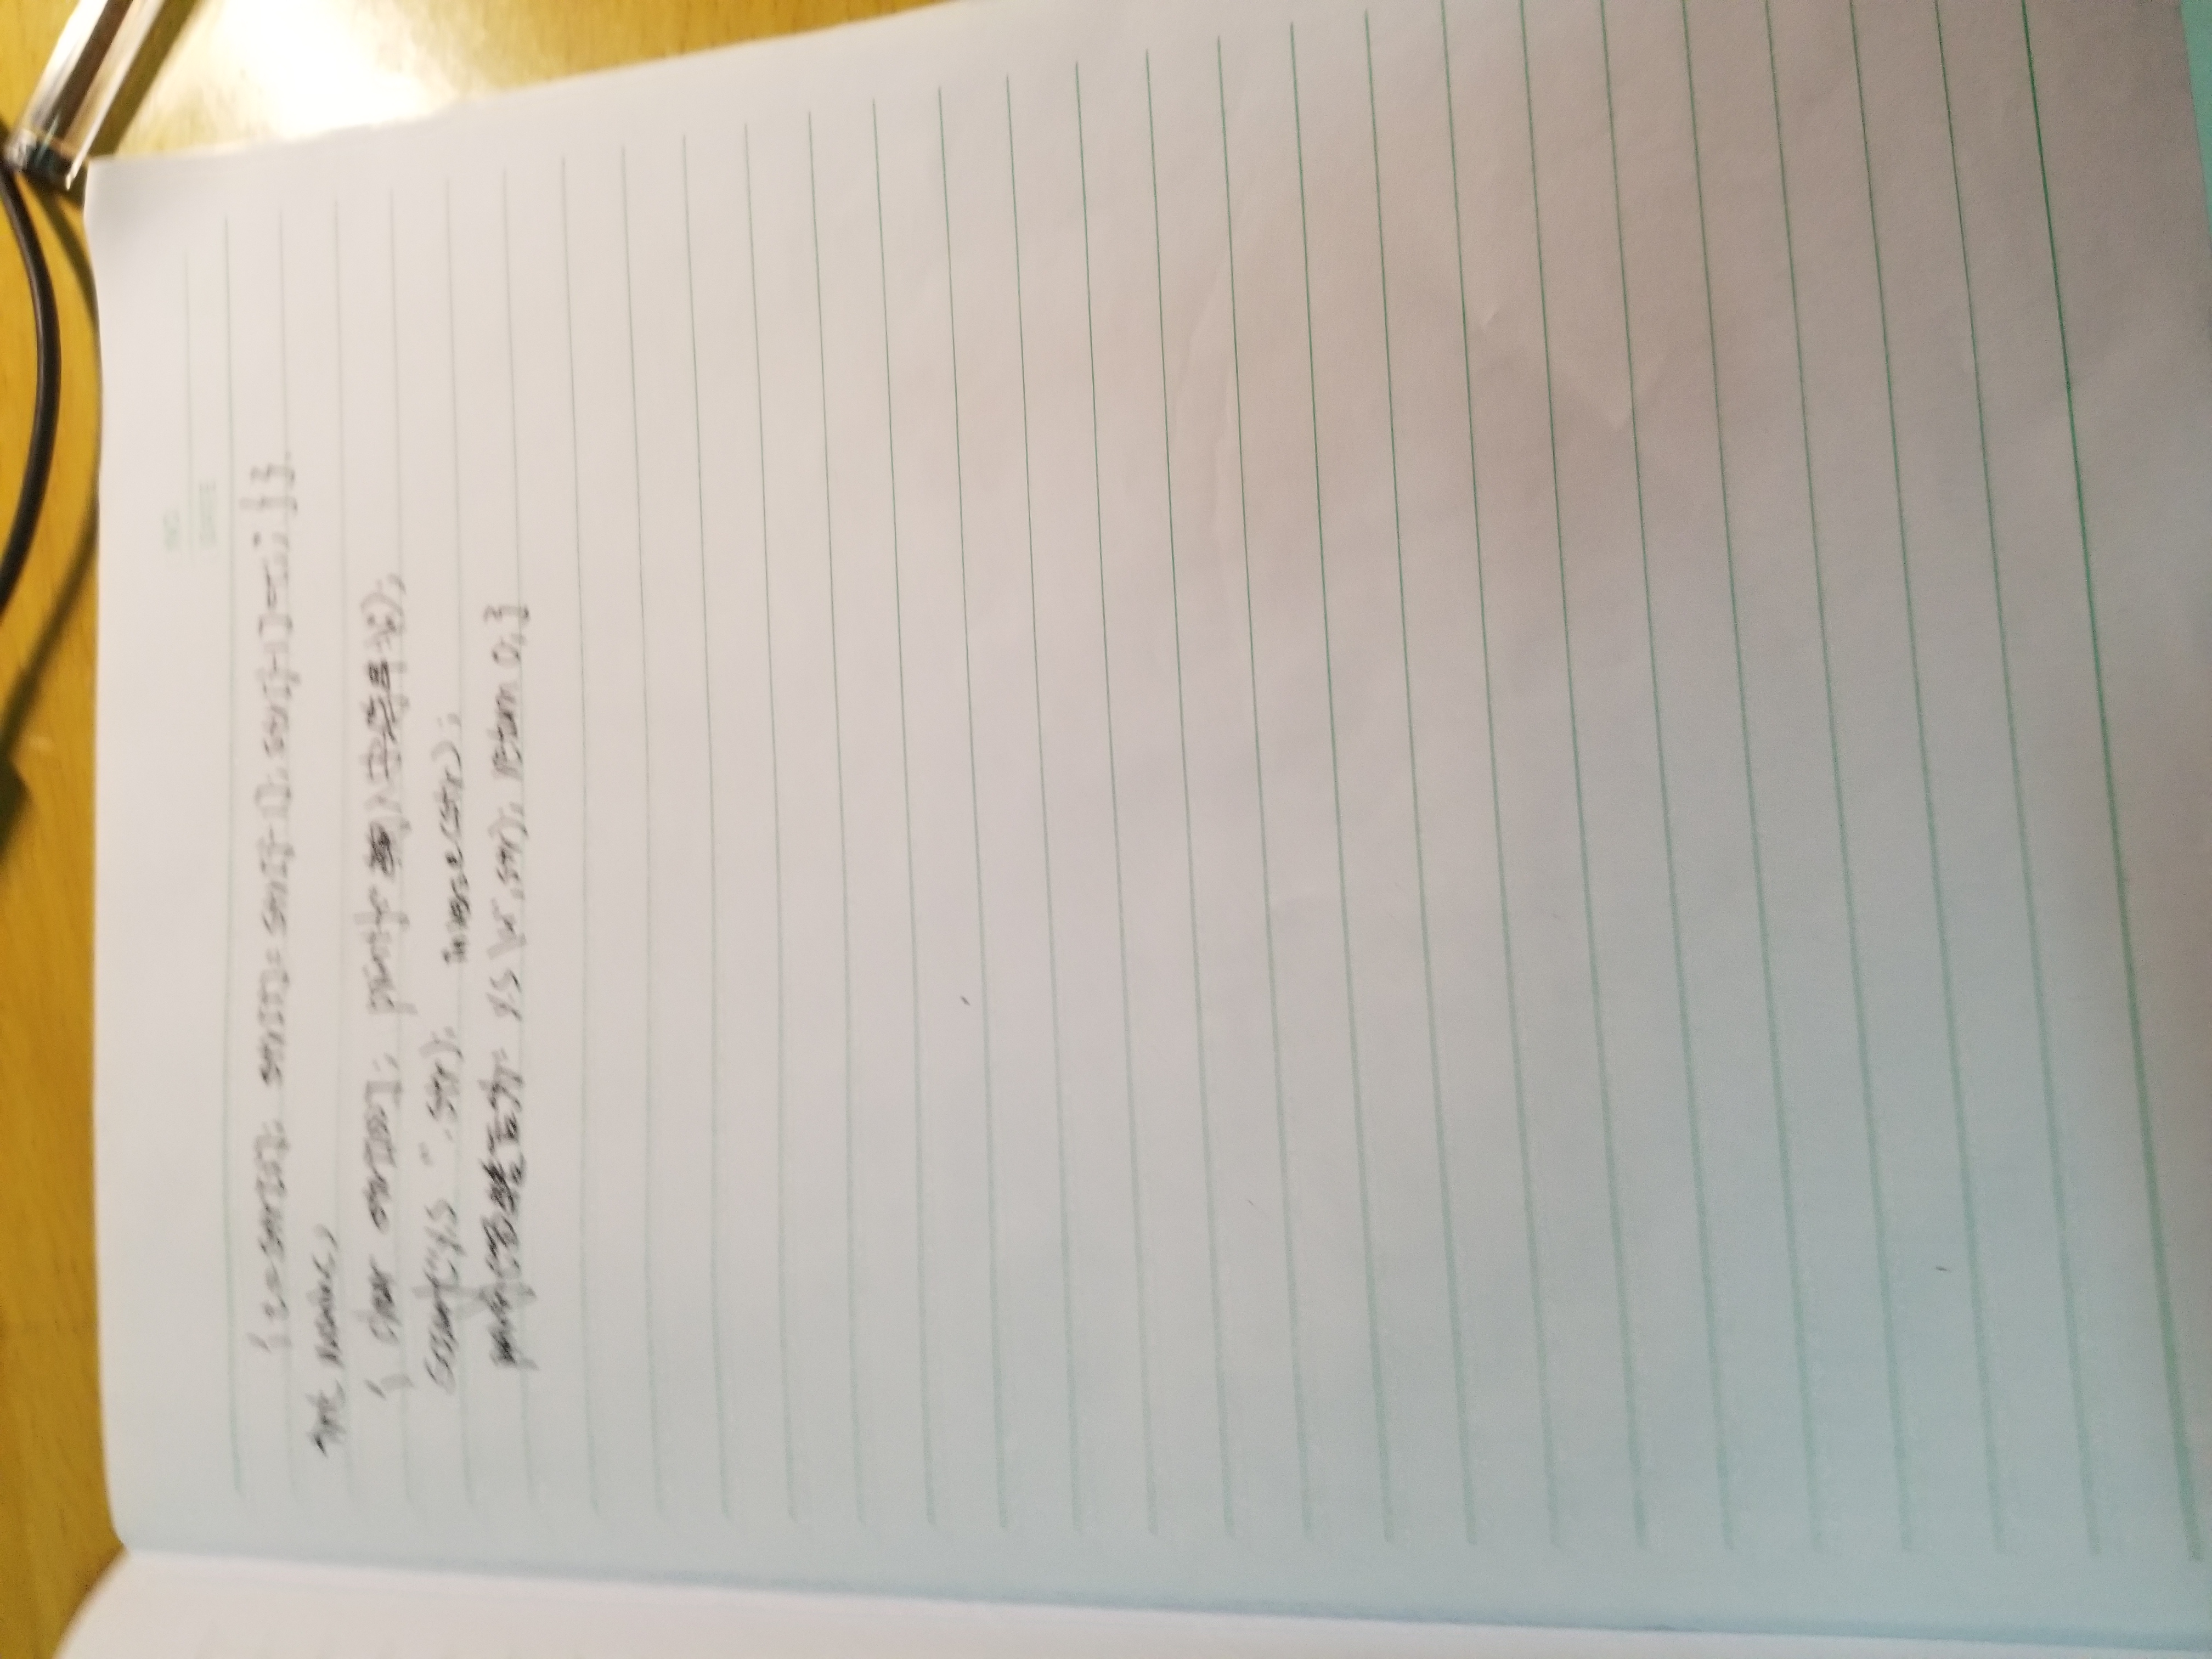 NO.
DATE
{ t=str[i]; str[i]= str[j-1]; str[j-1]=t; } }
int main()
{ char str[100]; printf 输入字符串
scanf("%s ",str); inverse(str);
printf( 为: %s \n",str); return 0; }